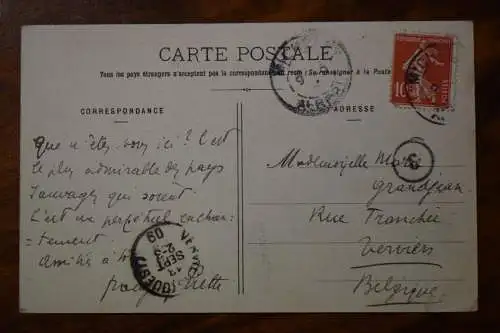 CARTE POSTALE
Tous les pays étrangers n'acceptent pas la correspondance au recto (Se renseigner à la Poste)
CORRESPONDANCE
ADRESSE
Que n'êtes vous ici ! C'est
le plus admirable des pays
sauvages qui soient
C'est un perpétuel enchan-
=tement
Amitiés à
Mademoiselle Marie
Grandjean
Rue Tranchée
Verviers
Belgique
10
POSTES
VERVIERS
(OUEST)
13
SEPT
09
3